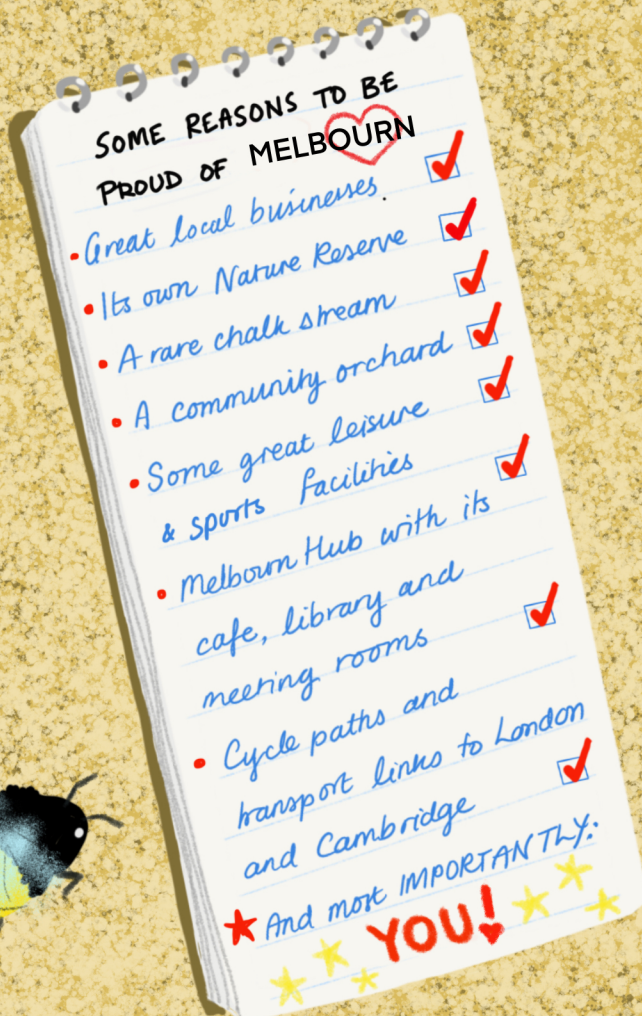 SOME REASONS TO BE
PROUD OF MELBOURN
• Great local businesses.
• Its own Nature Reserve
• A rare chalk stream
• A community orchard
• Some great leisure
& sports facilities
• Melbourn Hub with its
cafe, library and
meeting rooms
• Cycle paths and
transport links to London
and Cambridge
And most IMPORTANTLY:
YOU!